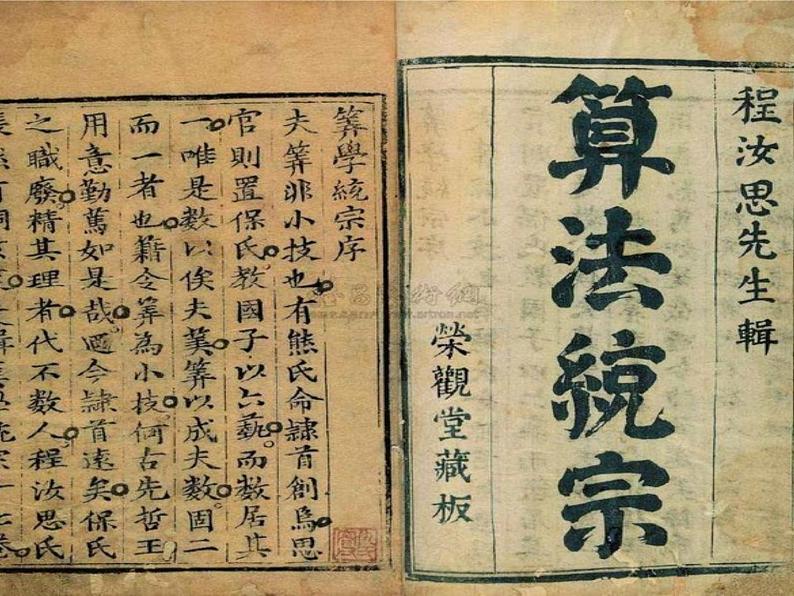 程汝思先生輯
算法統宗
榮觀堂藏板
筭學統宗序
夫筭非小技也有熊氏命隷首創爲思
官則置保氏教國子以六藝而數居其
一唯是数以俟夫筭筭以成夫数固二
而一者也籍令筭為小技何古先哲王
用意勤篤如是哉廼今隷首遠矣保氏
之職廢精其理者代不数人程汝思氏